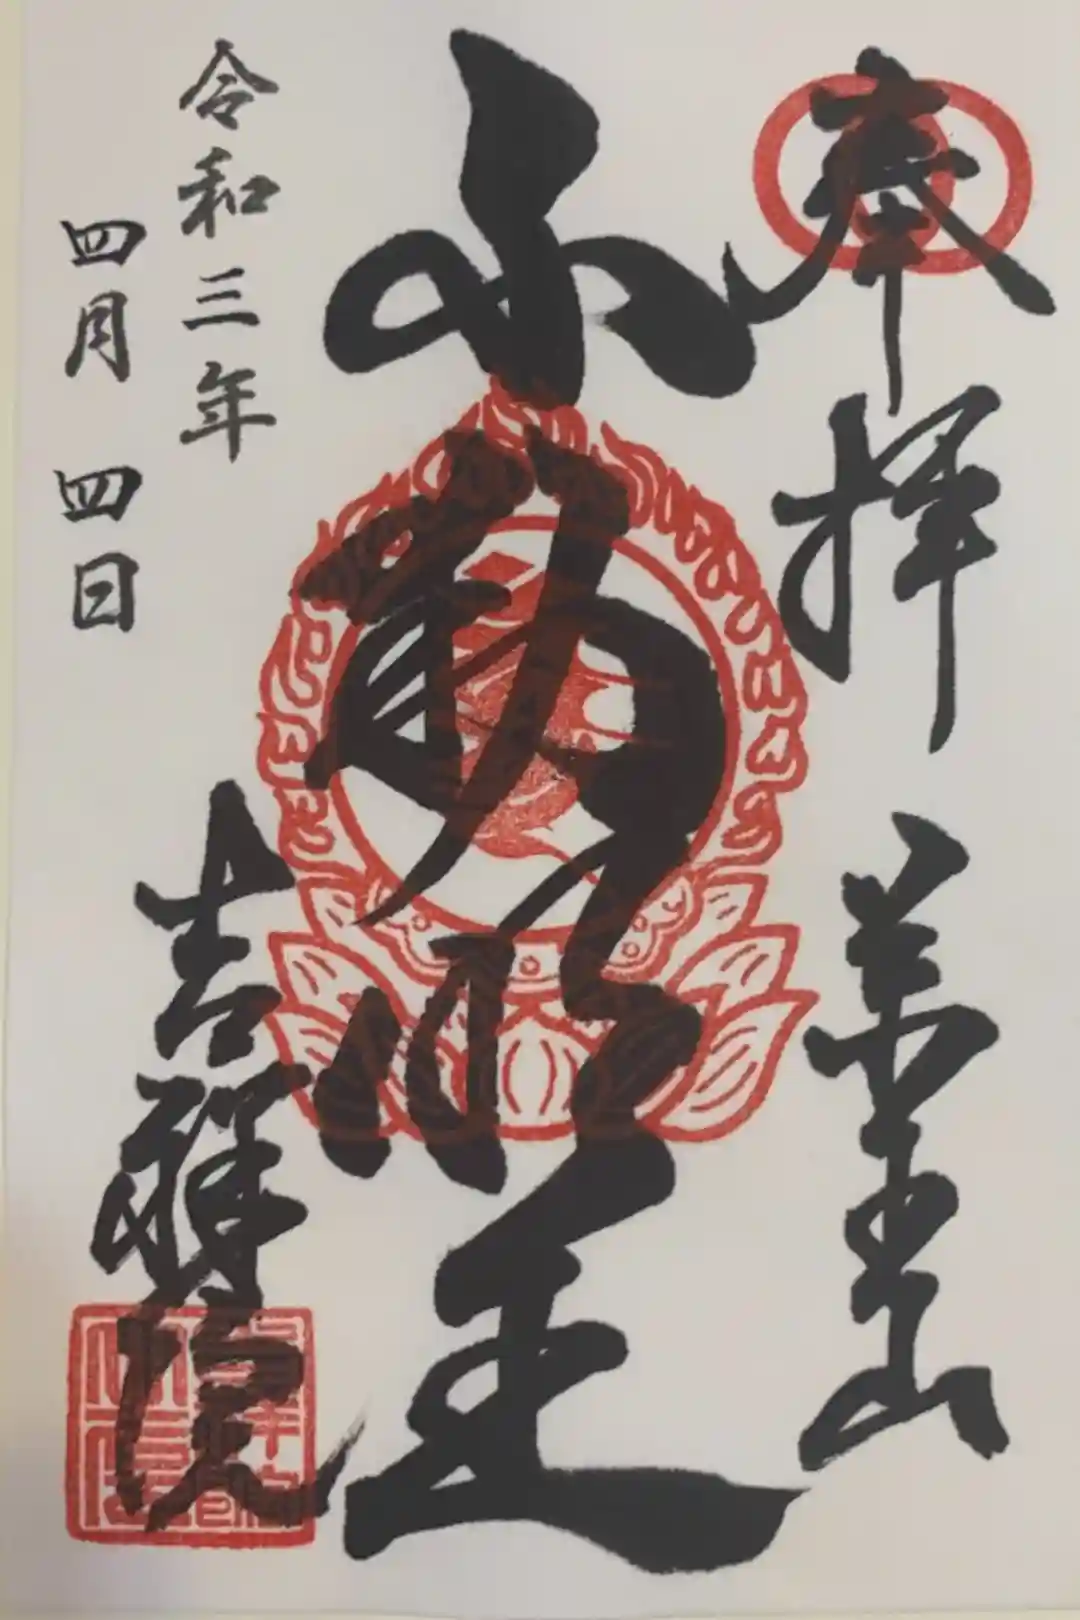 奉拝
不動明王
令和三年
四月四日
吉祥院